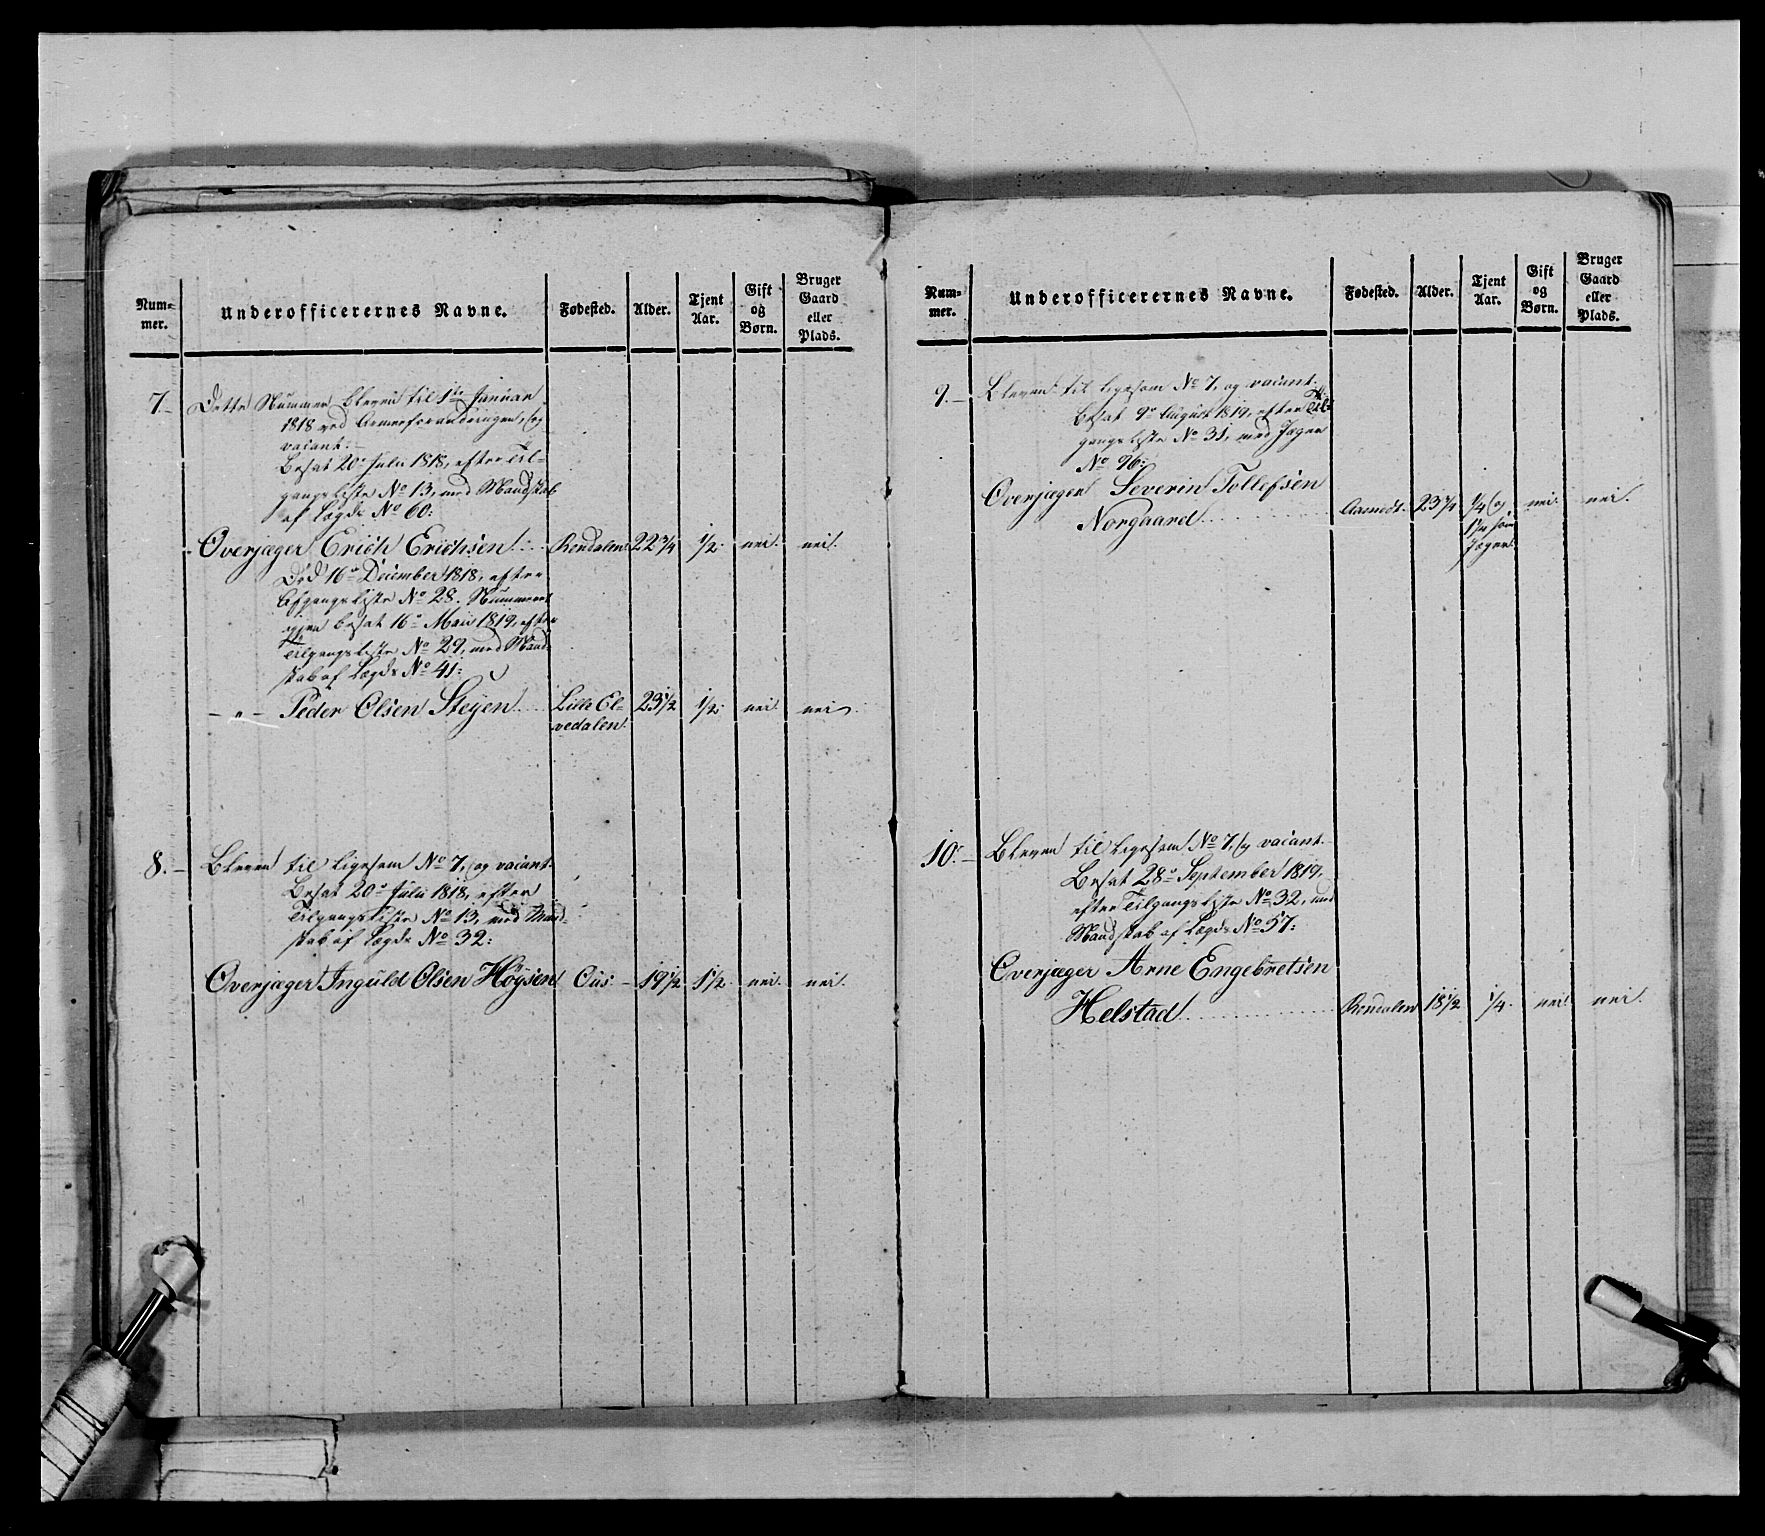 Num-
mer.
Underofficerernes Navne.
Fødested.
Alder.
Tjent
Aar.
Gift
og
Børn.
Bruger
Gaard
eller
Plads.
7.- Dette Nummer bleven til 1ste Januar
1818 ved Armeeforandringen, og
vacant:-
Besat 20de Julii 1818, efter Til-
gangsliste No 13, med Mandskab
af Lægds No 60:
Overjæger Erich Erichsen. Rendalen 22 3/4 1/2 nei. nei.
Død 16de December 1818, efter
Afgangsliste No 28. Nummeret
igjen besat 16de Maii 1819, efter
Tilgangsliste No 29, med Mand-
skab af Lægds No 41:
-"- Peder Olsen Steyen. Lille El- 23 1/2 1/2 nei. nei.
vedalen.
8.- Bleven til ligesom No 7, og vacant.
Besat 20de Julii 1818, efter
Tilgangsliste No 13, med Mand-
skab af Lægds No 32:
Overjæger Inguld Olsen Höysen Ous. - 19 1/2 1 1/2 nei. nei.
Num-
mer.
Underofficerernes Navne.
Fødested.
Alder.
Tjent
Aar.
Gift
og
Børn.
Bruger
Gaard
eller
Plads.
9.- Bleven til ligesom No 7, og vacant.
Besat 9de August 1819, efter Til-
gangsliste No 31, med Jæger
No 96:
Overjæger Severin Tollefsen
Norgaard Aamodt. 23 3/4 1/4 og nei. nei.
1 1/4 som
Jæger.
10.- Bleven til ligesom No 7, og vacant.
Besat 28de September 1819,
efter Tilgangsliste No 32, med
Mandskab af Lægds No 57:
Overjæger Arne Engebretsen
Helstad Rendalen 18 1/2 1/4 nei. nei.